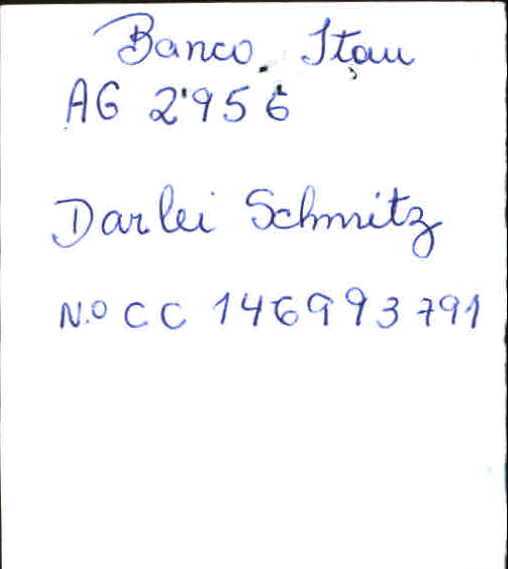 Banco Itau
AG 2956
Darlei Schmitz
N.o CC 146993791